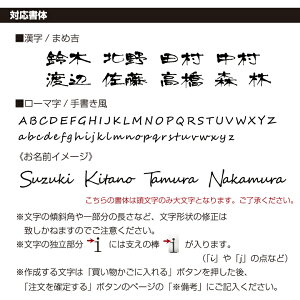 対応書体
■漢字 / まめ吉
鈴木 北野 田村 中村
渡辺 佐藤 高橋 森 林
■ローマ字 / 手書き風
A B C D E F G H I J K L M N O P Q R S T U V W X Y Z
a b c d e f g h i j k l m n o p q r s t u v w x y z
《お名前イメージ》
Suzuki Kitano Tamura Nakamura
こちらの書体は頭文字のみ大文字となります。ご了承ください。
※文字の傾斜角や一部分の長さなど、文字形状の修正は
致しかねますのでご注意ください。
※文字の独立部分 i には支えの棒 i が入ります。
(「i」や「j」の点など)
※作成する文字は「買い物かごに入れる」ボタンを押した後、
「注文を確定する」ボタンのページの「※備考」にご記入ください。